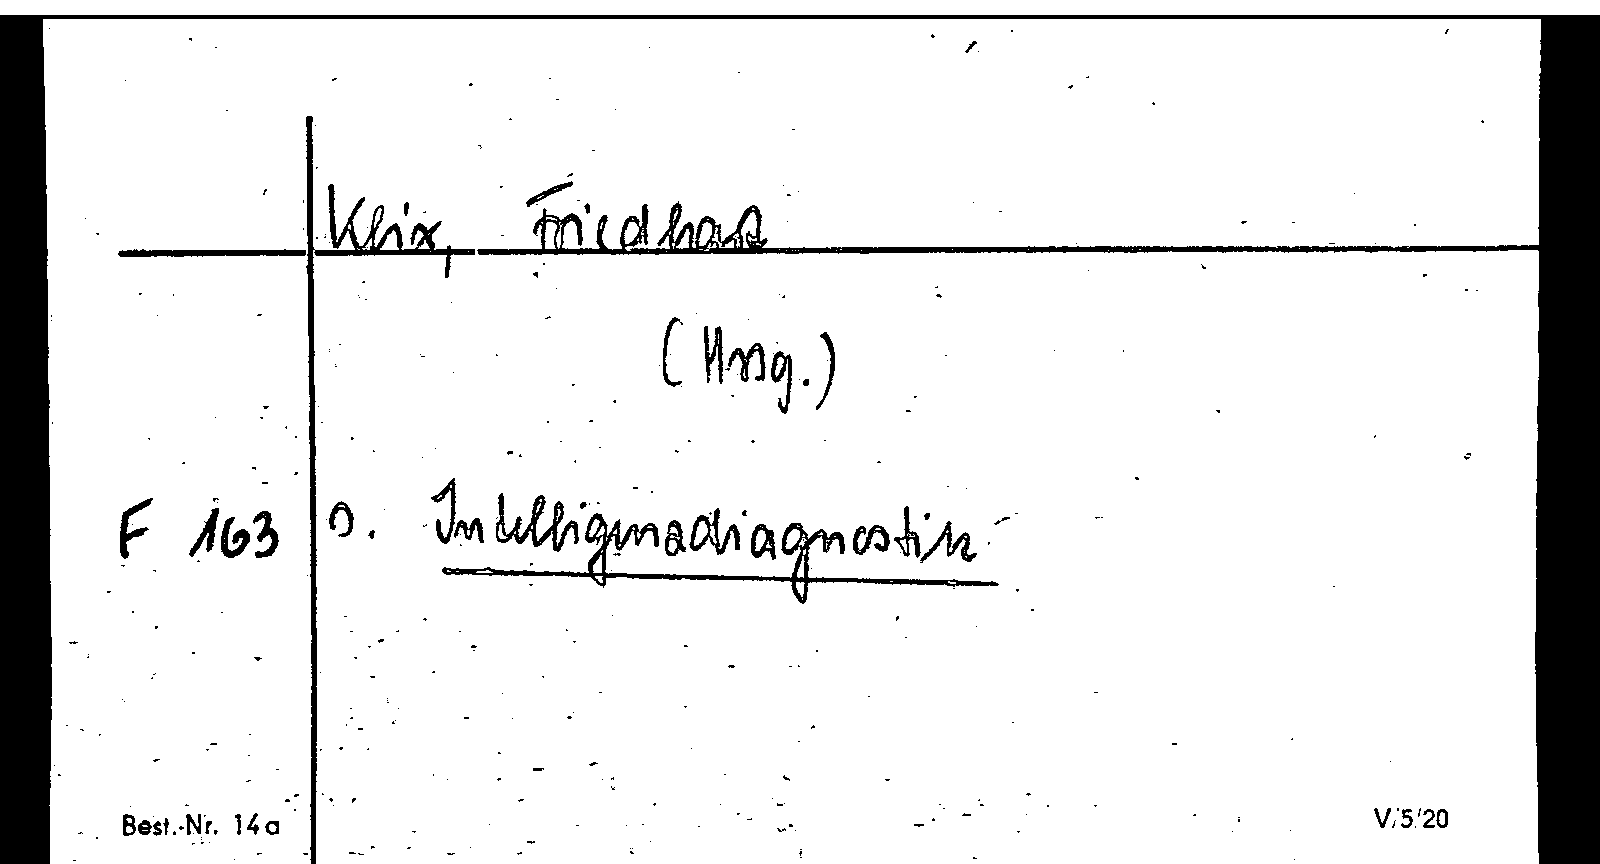 Klix, Friedhart
(Hrsg.)
F 163 s. Intelligenzdiagnostik
Best.-Nr. 14a V/5/20